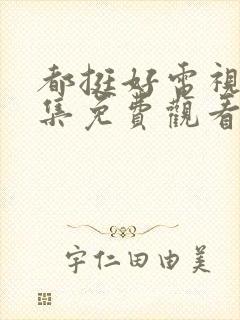 都挺好電視
集免費觀看
宇仁田由美